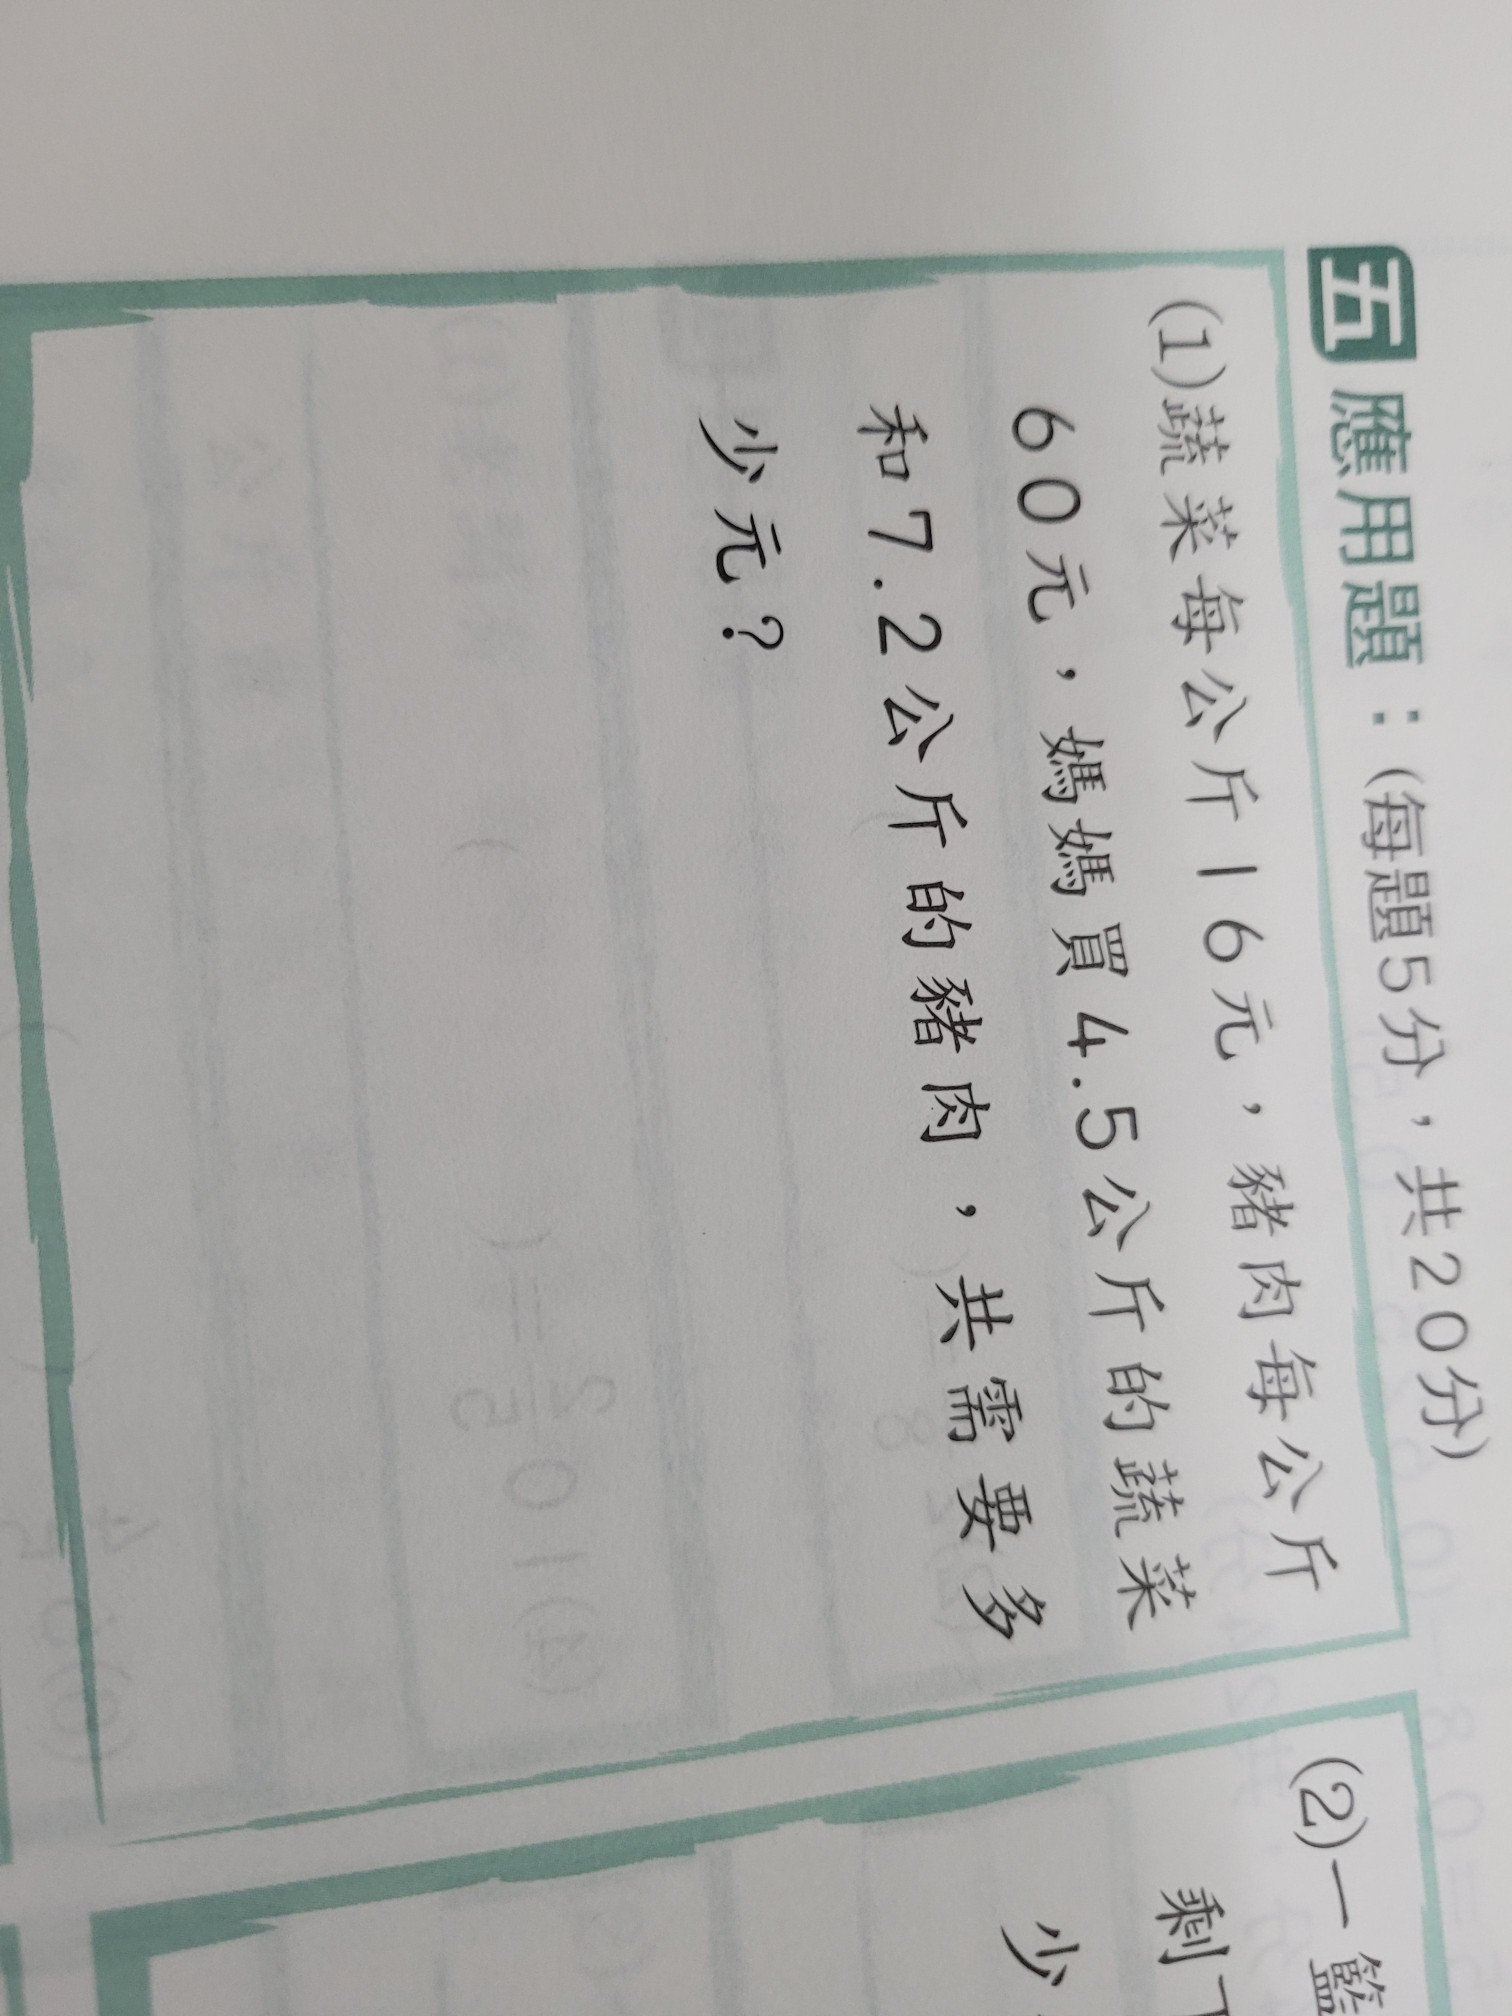 五 應用題：(每題5分，共20分)
(1)蔬菜每公斤16元，豬肉每公斤
60元，媽媽買4.5公斤的蔬菜
和7.2公斤的豬肉，共需要多
少元？
(2)一籃
剩下
少